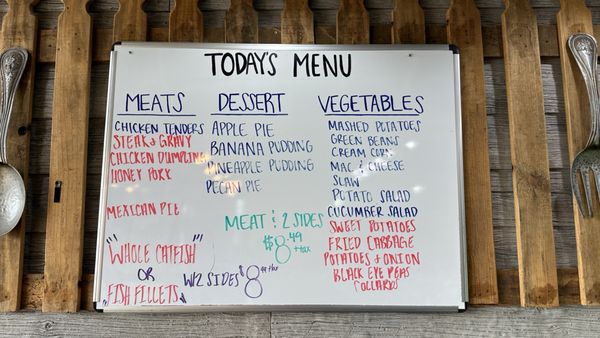 TODAY'S MENU
MEATS
CHICKEN TENDERS
STEAK & GRAVY
CHICKEN DUMPLING
HONEY PORK
MEXICAN PIE
"WHOLE CATFISH"
OR
"FISH FILLETS"
W/2 SIDES $8.99+tax
DESSERT
APPLE PIE
BANANA PUDDING
PINEAPPLE PUDDING
PECAN PIE
MEAT & 2 SIDES
$8.49+tax
VEGETABLES
MASHED POTATOES
GREEN BEANS
CREAM CORN
MAC & CHEESE
SLAW
POTATO SALAD
CUCUMBER SALAD
SWEET POTATOES
FRIED CABBAGE
POTATOES & ONION
BLACK EYE PEAS
COLLARDS